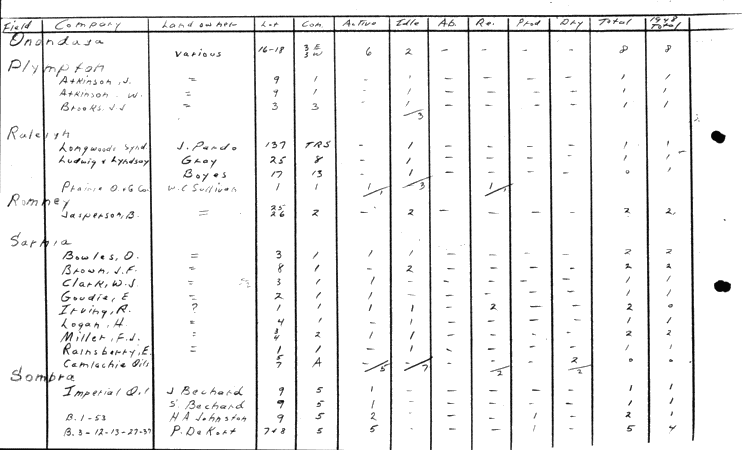 Field Company Land owner Lot Con. Active Idle Ab. Re. Prod Dry Total 1948 Total
Onondaga
Various 16-18 3 E 3 W 6 2 - - - - 8 8
Plympton
Atkinson, J. " 9 1 - 1 - - - - 1 1
Atkinson W. " 9 1 - 1 - - - - 1 1
Brooks. J.J " 3 3 - 1 - - - - 1 1
3
Raleigh
Longwoods Synd. J. Pardo 137 TRS - 1 - - - - 1 1
Ludwig & Lyndsay Gray 25 8 - 1 - - - - 1 1
Boyes 17 13 - 1 - - - - 0 1
Prairie O. & G Co. W.C Sullivan 1 1 1/1 /3 1/1
Romney
Jasperson, B. = 25 26 2 - 2 - - - - 2 2
Sarnia
Bowles, O. = 3 1 1 1 - - - - 2 2
Brown, J.F. " 8 1 - 2 - - - - 2 2
Clark, W.J = 3 1 1 - - - - - 1 1
Goudie, E = 2 1 1 - - - - - 1 1
Irving, R. ? 1 1 1 1 - 2 - - 2 0
Logan, H. " 4 1 - 1 - - - - 1 1
Miller, F.J. " 3 4 2 1 1 - - - - 2 2
Rainsberry, E. = 1 1 - 1 - - - - 1 1
Camlachie Oils 5 7 A -/5 -/7 - -/2 - 2/2 0 0
Sombra
Imperial Oil J Bechard 9 5 1 - - - - - 1 1
S. Bechard 9 5 1 - - - - - 1 1
B.1-53 H A Johnston 9 5 2 - - - 1 - 2 1
B.3-12-13-27-37 P. DeKort 7+8 5 5 - - - 1 - 5 4